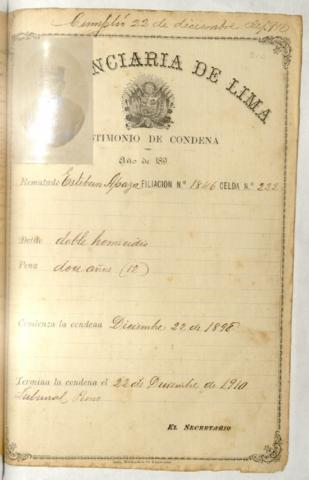 Cumplió 22 de diciembre de 1910
NCIARIA DE LIMA
STIMONIO DE CONDENA
Año de 189
Rematado Esteban Apaza FILIACIÓN N.º 1846 CELDA N.º 222
Delito doble homicidio
Pena doce años (12)
Comienza la condena Diciembre 22 de 1898
Termina la condena el 22 de Diciembre de 1910
Tribunal Puno
EL SECRETARIO